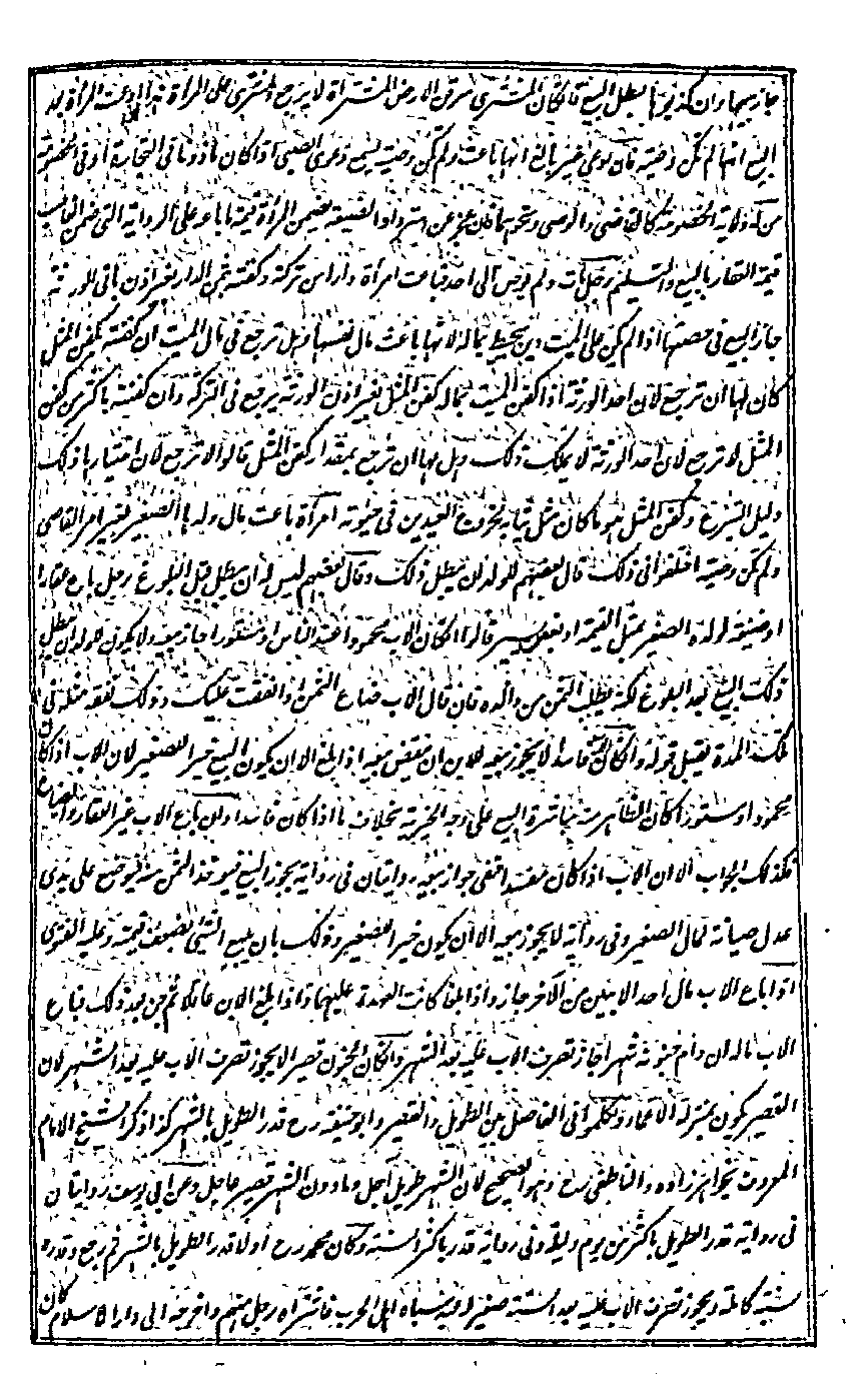 جاز بيعها وان كذبوها بطل البيع فان كان المشترى سرقن الارض المشتراة لا يرجع المشترى على المرأة هذا اذا ادعت المرأة بعد
البيع انها لم تكن وصية فان ادعى غير بالغ انها باعت ولم تكن وصية يسمع دعوى الصبى اذا كان ماذونا فى التجارة او فى الخصومة
من له ولاية الخصومة كالقاضى والوصى ونحوهما فان عجز عن استرداد الضيعة يضمن المرأة قيمة ما باعه على الرواية التى ضمن الغاصب
قيمة العقار بالبيع والتسليم رجل مات ولم يوص الى احد فباعت امرأة دارا من تركته وكفنته بثمن الدار بغير اذن باقى الورثة
جاز البيع فى حصتها اذا لم يكن على الميت دين يحيط بماله لانها باعت مال نفسها وهل ترجع فى مال الميت ان كفنته بكفن المثل
كان لها ان ترجع لان احد الورثة اذا كفن الميت بماله كفن المثل بغير اذن الورثة يرجع فى التركة وان كفنته باكثر من كفن
المثل لا ترجع لان احد الورثة لا يملك ذلك وهل لها ان ترجع بمقدار كفن المثل قالوا لا ترجع لان اختيارها ذلك
دليل التبرع وكفن المثل هو ما كان مثل ثيابه لخروج العيدين فى حيوته امرأة باعت مال ولدها الصغير بغير امر القاضى
ولم تكن وصية اختلفوا فى ذلك قال بعضهم للولد ان يبطل ذلك وقال بعضهم ليس له ان يبطل قبل البلوغ رجل باع عقارا
او ضيعة لولده الصغير بمثل القيمة او بغبن يسير قالوا ان كان الاب محمودا عند الناس او مستورا جاز بيعه ولا يكون للولد ان يبطل
ذلك البيع بعد البلوغ لكنه يطلب الثمن من والده فان قال الاب ضاع الثمن او انفقت عليك وذلك نفقة مثله فى
تلك المدة يقبل قوله وان كان الاب فاسدا لا يجوز بيعه للابن ان ينقض بيعه اذا بلغ الا ان يكون البيع خيرا للصغير لان الاب اذا كان
محمودا او مستورا كان الظاهر منه مباشرة البيع على وجه الخيرية بخلاف ما اذا كان فاسدا وان باع الاب غير العقار والضياع
فكذلك الجواب الا ان الاب اذا كان مفسدا ففى جواز بيعه روايتان فى رواية يجوز البيع فيوخذ الثمن منه فيوضع على يدى
عدل صيانة لمال الصغير وفى رواية لا يجوز بيعه الا ان يكون خيرا للصغير وذلك بان يبيع الشئ بضعف قيمته وعليه الفتوى
اذا باع الاب مال احد الابنين من الآخر جاز واذا بلغا كانت العهدة عليهما واذا بلغ الابن عاقلا ثم جن بعد ذلك فباع
الاب ماله ان دام جنونه شهرا جاز تصرف الاب عليه بعد الشهر وان كان الجنون قصيرا لا يجوز تصرف الاب عليه بعد الشهر لان
القصير يكون بمنزلة الاغماء وتكلموا فى الفاصل بين الطويل والقصير وابو حنيفة رح قدر الطويل بالشهر كذا ذكر الشيخ الامام
المعروف بخواهرزاده والناطفى رح وهو الصحيح لان الشهر طويل آجل وما دون الشهر قصير عاجل وعن ابى يوسف روايتان
فى رواية قدر الطويل باكثر من يوم وليلة وفى رواية قدر باكثر السنة وكان محمد رح اولا قدر الطويل بالشهر ثم رجع وقدره
سنة كاملة ويجوز تصرف الاب عليه بعد السنة صغير او صغيرة سباه اهل الحرب فاشتراه رجل منهم واخرجه الى دار الاسلام كان